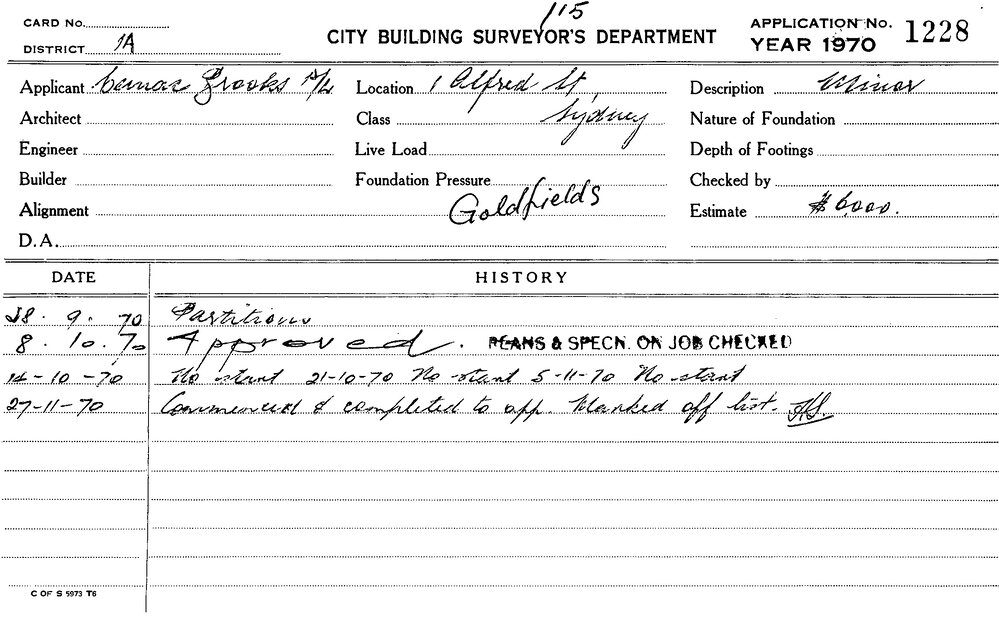 115
CARD No.
DISTRICT 1A
CITY BUILDING SURVEYOR'S DEPARTMENT
APPLICATION No. 1228
YEAR 1970
Applicant Cemac Brooks P/L
Location 1 Alfred St,
Description Minor
Architect
Class Sydney
Nature of Foundation
Engineer
Live Load
Depth of Footings
Builder
Foundation Pressure
Checked by
Alignment
Goldfields
Estimate $6,000.
D.A.
DATE HISTORY
28. 9. 70 Partitions
8. 10. 70 Approved. PLANS & SPECN. ON JOB CHECKED
14-10-70 No start 21-10-70 No start 5-11-70 No start
27-11-70 Commenced & completed to app. Marked off list.
C OF S 5973 T6